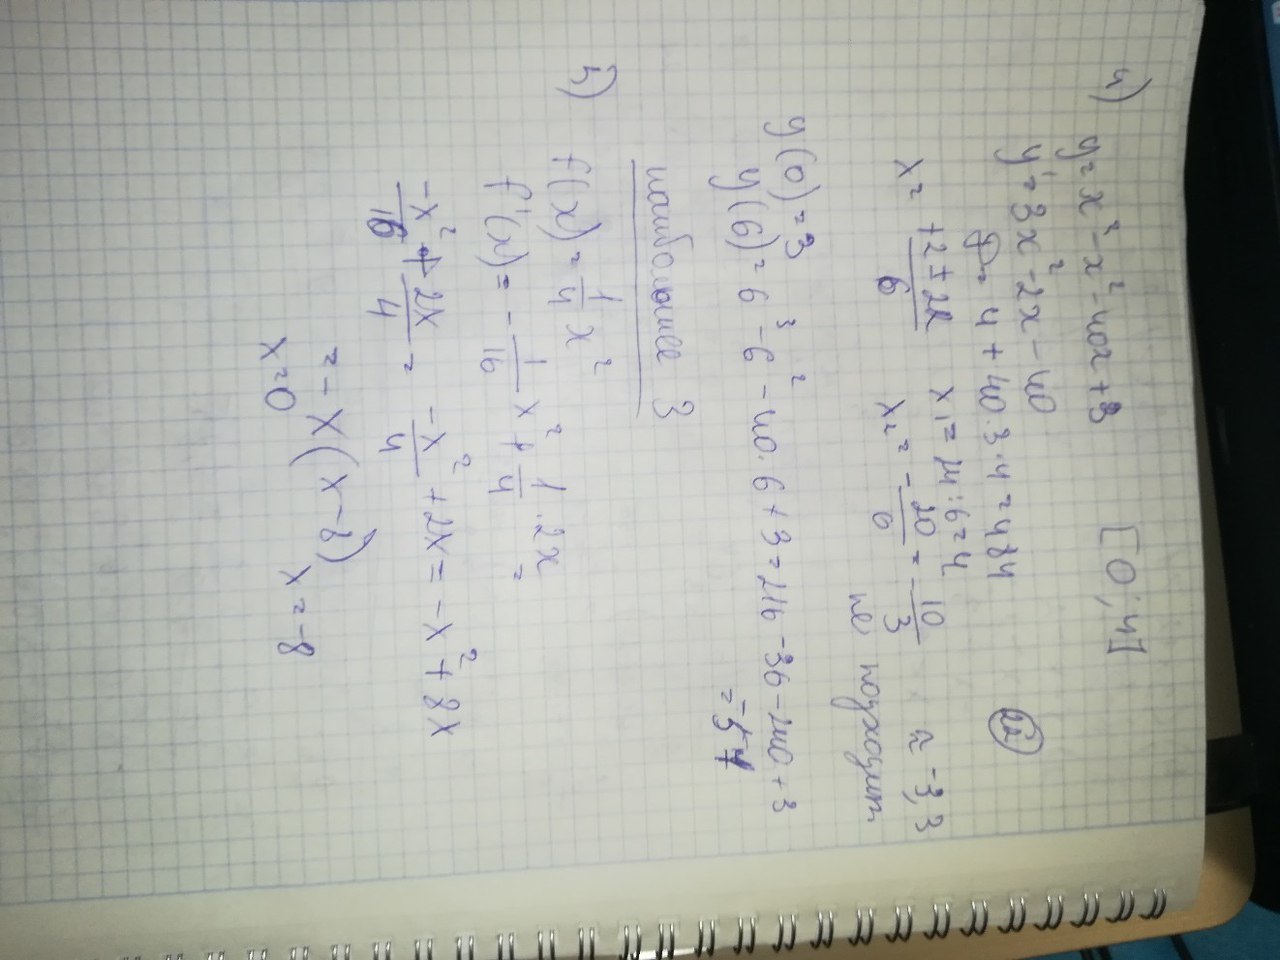 4) y = x² - x² - 40x + 3 [0; 4]
y' = 3x² - 2x - 40
D = 4 + 40·3·4 = 484 (22)
x = +2±22/6 x₁ = 24:6 = 4
x₂ = -20/6 = -10/3 ≈ -3,3
не подходит
y(0) = 3
y(6) = 6³ - 6² - 40·6 + 3 = 216 - 36 - 240 + 3
= -57
наибольшее 3
5) f(x) = 1/4 x²
f'(x) = -1/16 x² + 1/4·2x =
-x²/16 + 2x/4 = -x²/4 + 2x = -x² + 8x
= -x(x-8)
x=0 x=-8